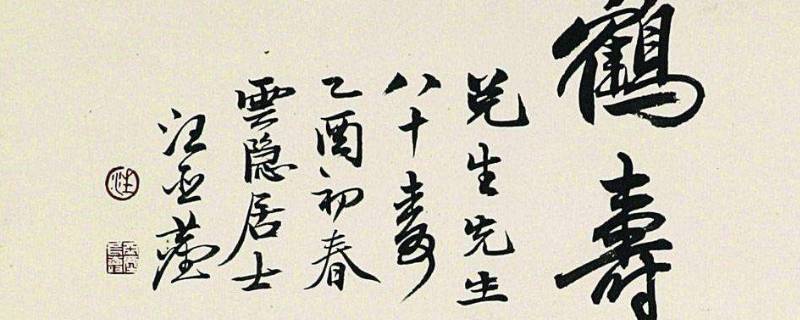 鶴壽
兑生先生
八十壽
乙酉初春
雲隐居士
汪亚蓥
汪